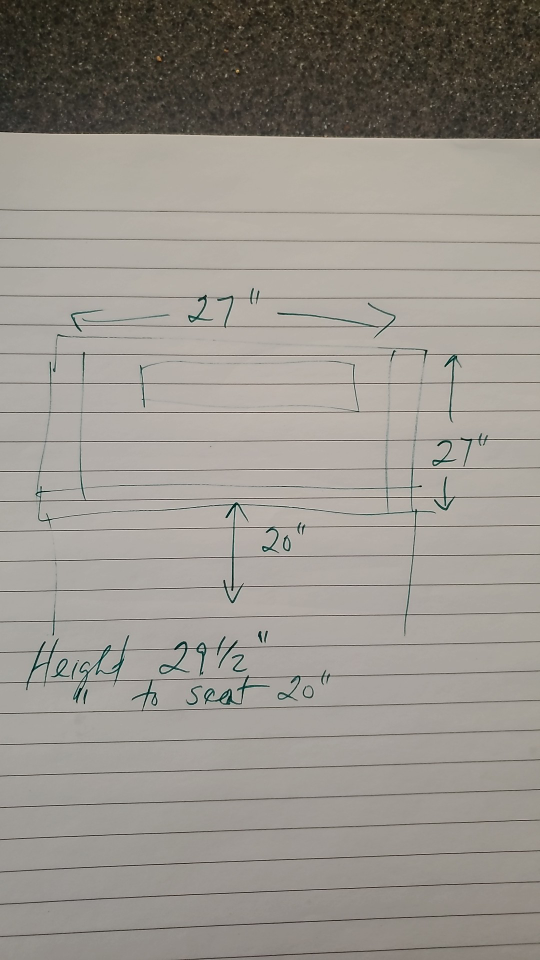 27"
27"
20"
Height 29 1/2"
" to seat 20"